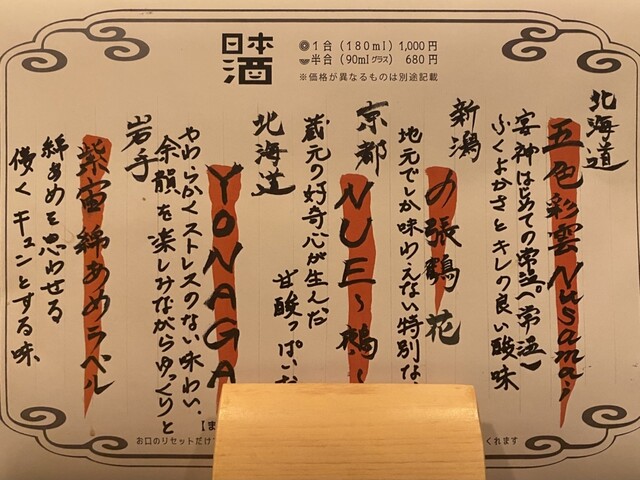 日本酒
◉1合（180ml）1,000円
半合（90mlグラス）680円
※価格が異なるものは別途記載
北海道
五色彩雲Nusamai
宴神はじめての常温。（常温）
ふくよかさとキレの良い酸味
新潟
〆張鶴 花
地元でしか味わえない特別な
京都
NUE〜鵺〜
蔵元の好奇心が生んだ
甘酸っぱいだ
北海道
YONAGA
やわらかくストレスのない味わい。
余韻を楽しみながらゆっくりと
岩手
紫宙 綿あめラベル
綿あめを思わせる
儚くキュンとする味
お口のリセットだけ
くれます